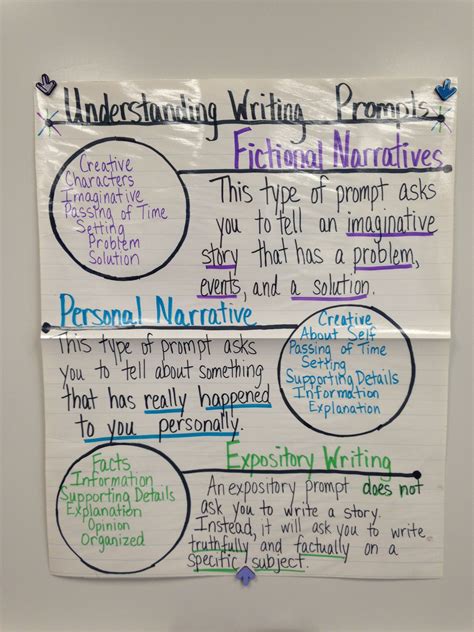 Understanding Writing Prompts
Fictional Narratives
Creative
Characters
Imaginative
Passing of Time
Setting
Problem
Solution
This type of prompt asks
you to tell an imaginative
story that has a problem,
events, and a solution.
Personal Narrative
This type of prompt asks
you to tell about something
that has really happened
to you personally.
Creative
About Self
Passing of Time
Setting
Supporting Details
Information
Explanation
Expository Writing
Facts
Information
Supporting Details
Explanation
Opinion
Organized
An expository prompt does not
ask you to write a story.
Instead, it will ask you to write
truthfully and factually on a
specific subject.